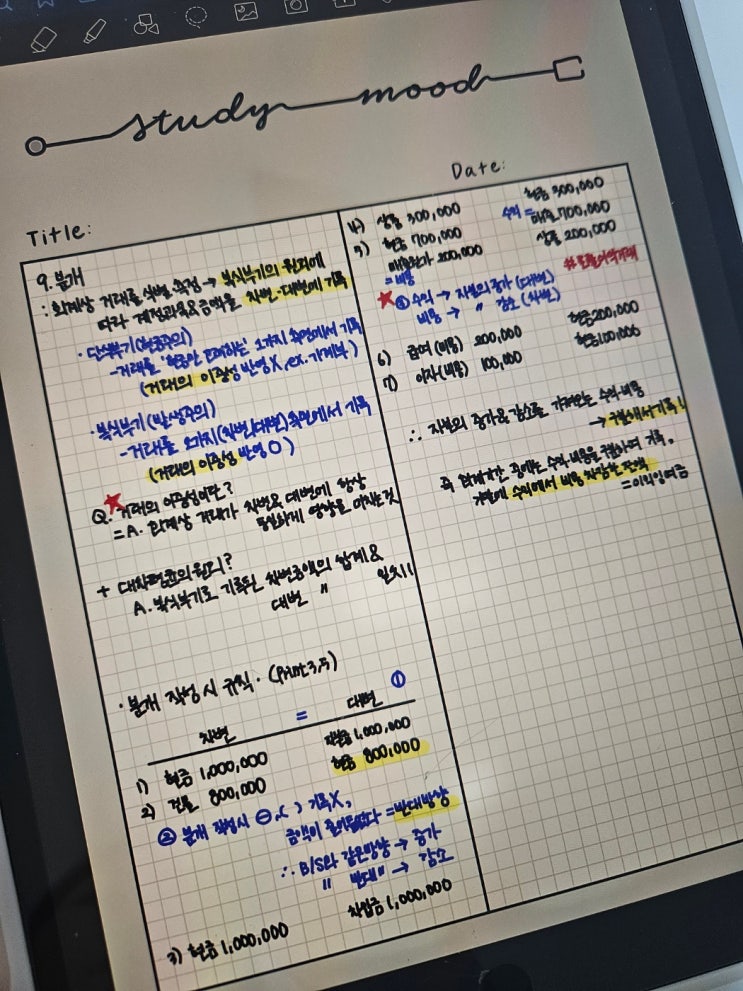 study mood
Date:
Title:
9. 분개
: 회계상 거래를 식별, 측정 → 복식부기의 원리에
따라 계정과목&금액을 차변·대변에 기록
· 단식부기(현금주의)
- 거래를 현금만 1가지 측면에서 기록
(거래의 이중성 반영 X, ex. 가계부)
· 복식부기(발생주의)
- 거래를 2가지(차변/대변)측면에서 기록
(거래의 이중성 반영 O)
Q. 거래의 이중성이란?
= A. 회계상 거래가 차변& 대변에 항상
동일하게 영향을 미치는것
+ 대차평균의 원리?
A. 복식부기로 기록된 차변금액의 합계 &
대변 " 일치!!
· 분개 작성 시 규칙. (Print 3,5)
차변 = 대변 ①
1) 현금 1,000,000 자본금 1,000,000
2) 건물 800,000 현금 800,000
② 분개 작성시 ⊖, ( ) 기록X,
금액이 줄어들었다 = 반대방향
∴ B/S와 같은방향 → 증가
" 반대" → 감소
3) 현금 1,000,000 차입금 1,000,000
4) 상품 300,000 현금 300,000
5) 현금 700,000 수익 = 매출 700,000
매출원가 200,000 상품 200,000
= 비용
③ 수익 → 자본의 증가 (대변)
비용 → " 감소 (차변)
6) 급여(비용) 200,000 현금 200,000
7) 이자(비용) 100,000 현금 100,000
∴ 자본의 증가& 감소를 가져오는 수익·비용
→ 구분해서 기록!
즉 회계기간 중에는 수익·비용을 구분하여 기록,
기말에 수익에서 비용 차감한 잔액
= 이익잉여금